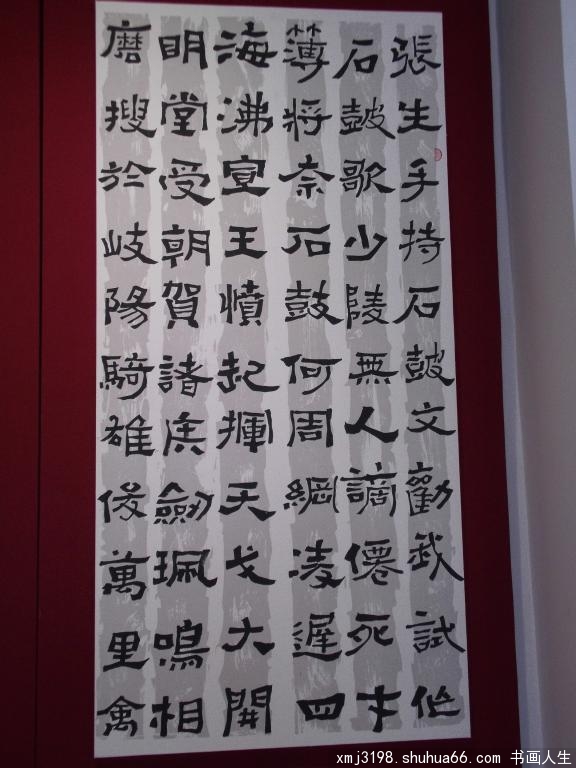 張生手持石鼓文勸我試作
石鼓歌少陵無人謫僊死才
薄將奈石鼓何周綱凌遲四
海沸宣王憤起揮天戈大開
明堂受朝賀諸侯劒珮鳴相
磨搜於岐陽騎雄俊萬里禽
xmj3198.shuhua66.com 书画人生